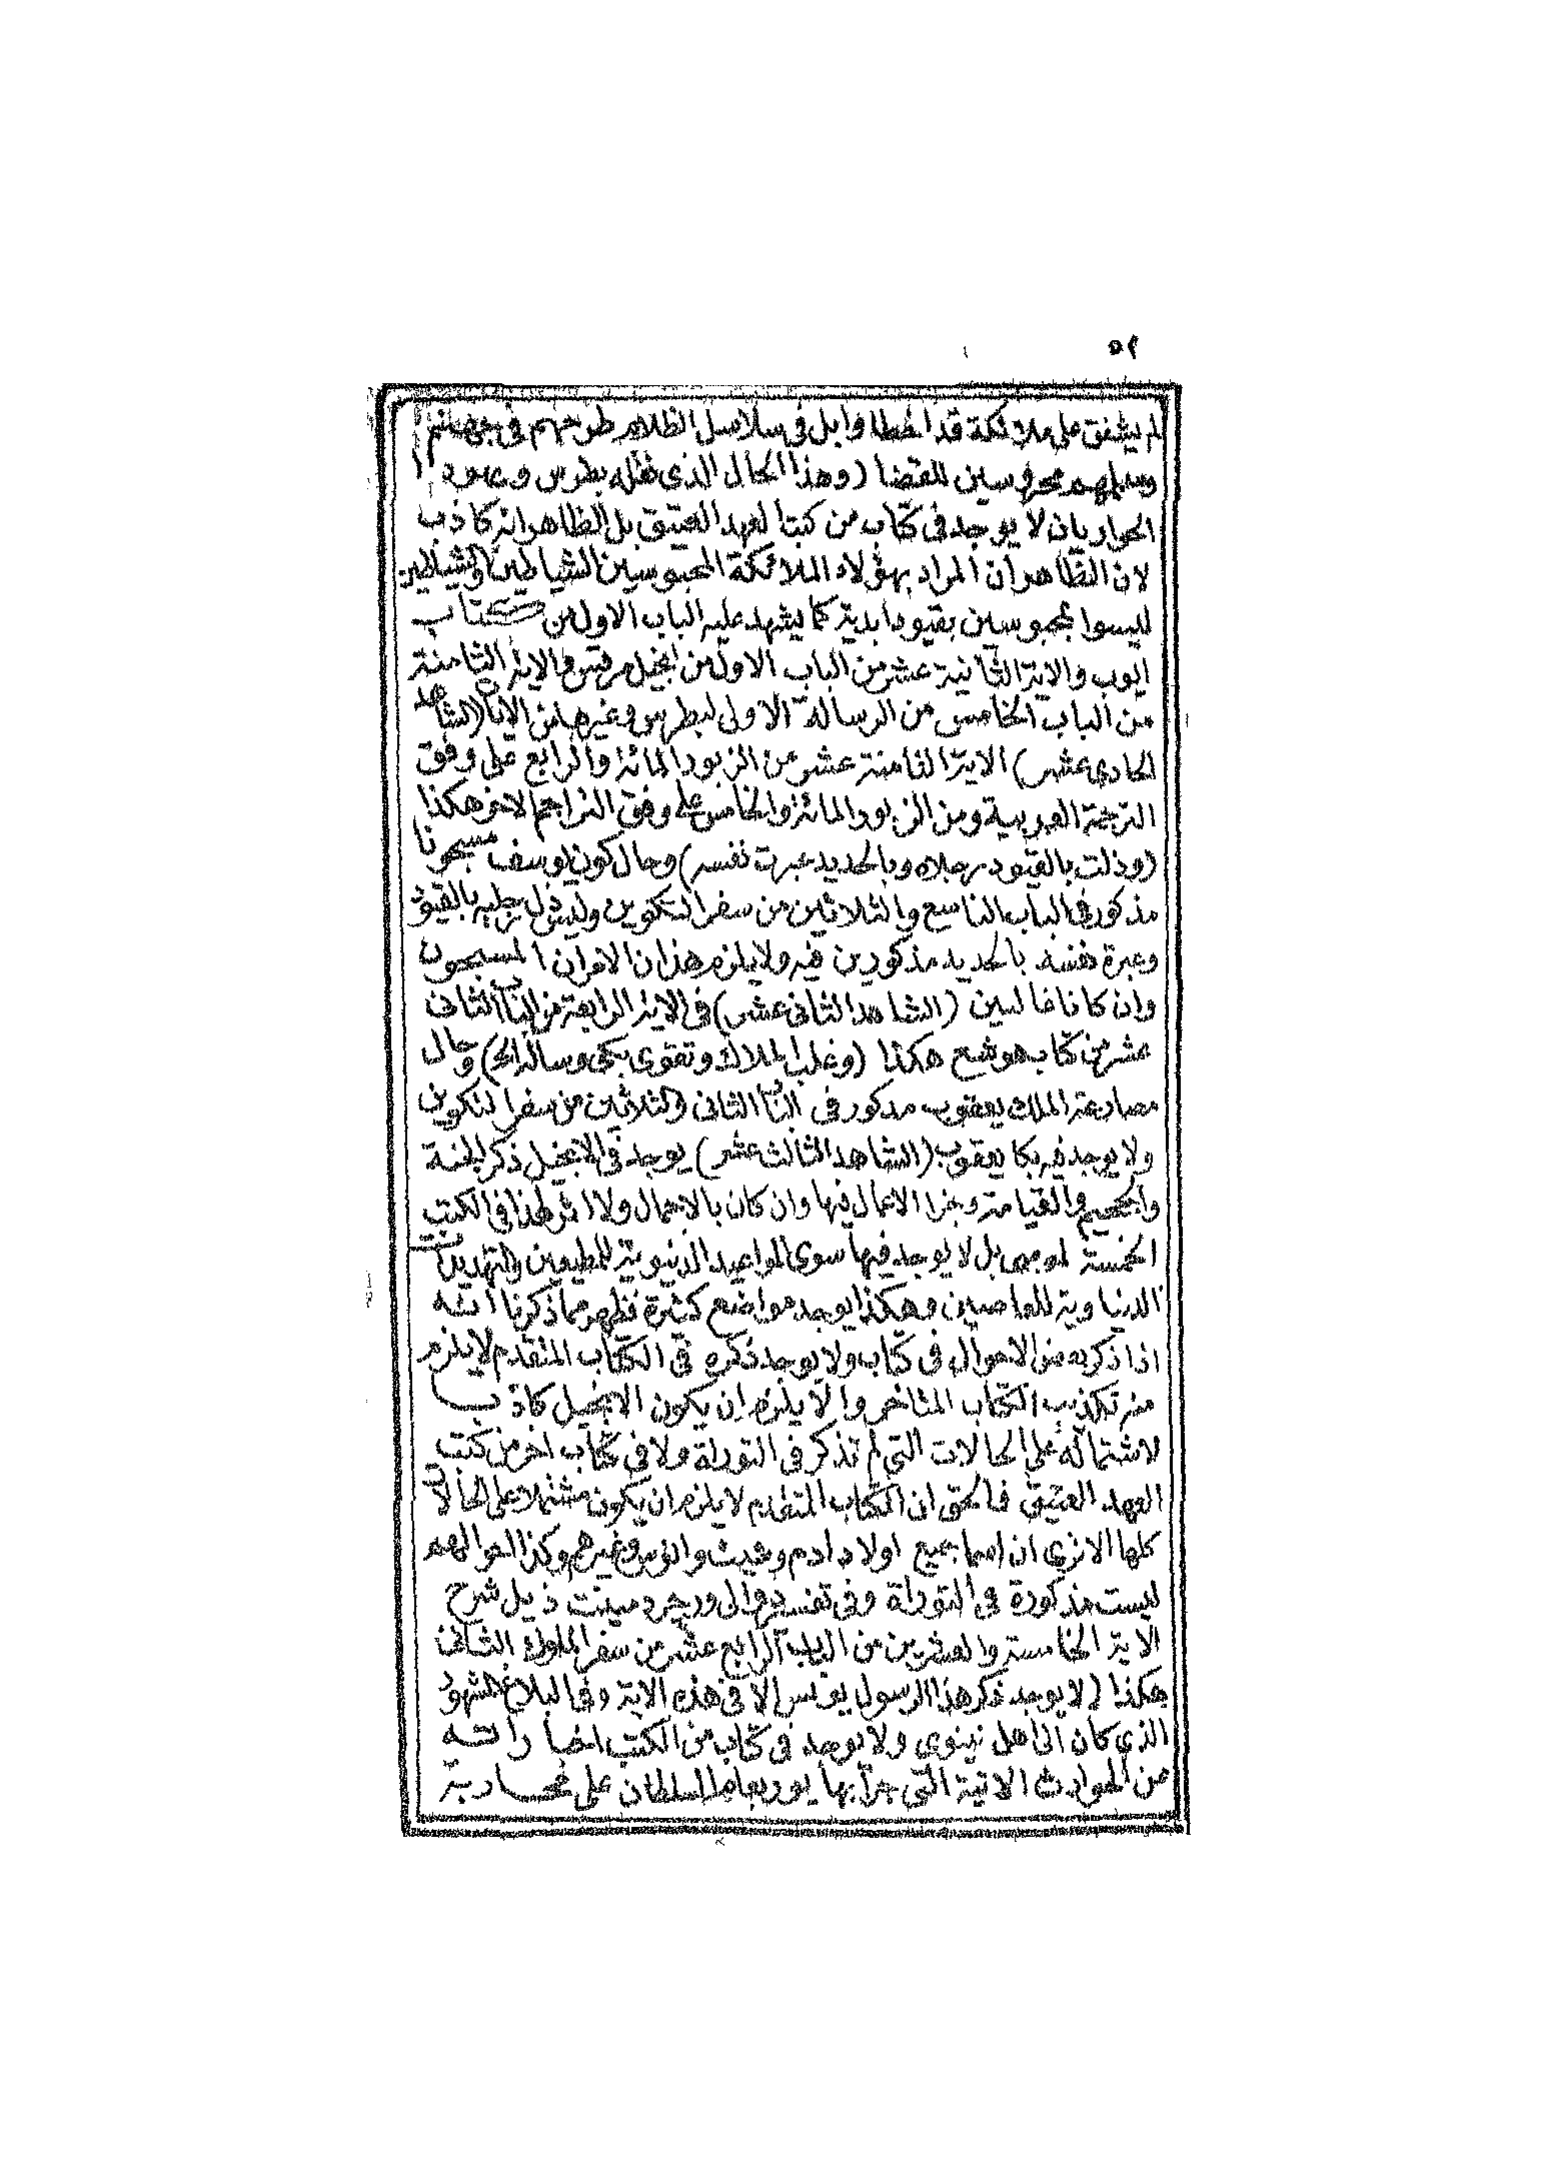 ٥٢
لم يشفق على ملائكة قد اخطاوا بل فى سلاسل الظلام طرحهم فى جهنم
وسلمهم محروسين للقضا (وهذا الحال الذى نقله بطرس ويهودا
الحواريان لا يوجد فى كتاب من كتب العهد العتيق بل الظاهر انه كاذب
لان الظاهر ان المراد بهؤلاء الملائكة المحبوسين الشياطين والشياطين
ليسوا بمحبوسين بقيود ابدية كما يشهد عليه الباب الاول من كتاب
ايوب والاية الثانية عشر من الباب الاول من انجيل مرقس والاية الثامنة
من الباب الخامس من الرسالة الاولى لبطرس وغيرها من الايات (الشاهد
الحادى عشر) الاية الثامنة عشر من الزبور المائة والرابع على وفق
الترجمة العربية ومن الزبور المائة والخامس على وفق التراجم الاخر هكذا
(وذلت بالقيود رجلاه وبالحديد عبرت نفسه) وحال كون يوسف مسجونا
مذكور فى الباب التاسع والثلاثين من سفر التكوين وليس ذل رجليه بالقيود
وعبرة نفسه بالحديد مذكورين فيه ولا يلزم هذان الامران المسجون
وان كانا غالبين (الشاهد الثانى عشر) فى الاية الرابعة من الباب الثانى
عشر من كتاب هوشع هكذا (وغلب الملاك وتقوى بكى وساله الخ) وحال
مصارعة الملك يعقوب مذكور فى الباب الثانى والثلاثين من سفر التكوين
ولا يوجد فيه بكا يعقوب (الشاهد الثالث عشر) يوجد فى الانجيل ذكر الجنة
والجحيم والقيامة وجزا الاعمال فيها وان كان بالاجمال ولا اثر لهذا فى الكتب
الخمسة لموسى بل لا يوجد فيها سوى المواعيد الدنيوية للمطيعين والتهديدات
الدنياوية للعاصين وهكذا يوجد مواضع كثيرة فظهر مما ذكرنا انه
اذا ذكر من الاحوال فى كتاب ولا يوجد ذكره فى الكتاب المتقدم لا يلزم
منه تكذيب الكتاب المتاخر والا يلزم ان يكون الانجيل كاذب
لاشتماله على الحالات التى لم تذكر فى التوراة ولا فى كتاب اخر من كتب
العهد العتيق فالحق ان الكتاب المتقدم لا يلزم ان يكون مشتملا على الحالات
كلها الا ترى ان اسما جميع اولاد ادم وشيث وانوس وغيرهم وكذا احوالهم
ليست مذكورة فى التوراة وفى تفسير دوالى ورجرد مينت ذيل شرح
الاية الخامسة والعشرين من الباب الرابع عشر من سفر الملوك الثانى
هكذا (لا يوجد ذكر هذا الرسول يونس الا فى هذه الاية وفى البلاغ المشهور
الذى كان الى اهل نينوى ولا يوجد فى كتاب من الكتب اخباراته
من الحوادث الاتية التى جرا بها يوربعام السلطان على محاربة